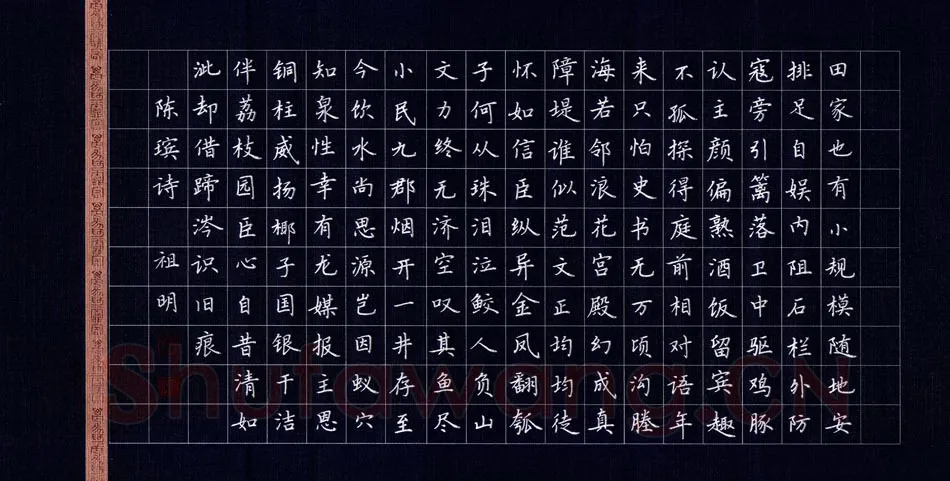 田家也有小规模随地安
排足自娱内阻石栏外防
寇旁引篱落卫中驱鸡豚
认主颜偏熟酒饭留宾趣
不孤探得庭前相对语年
来只怕史书无万顷沟塍
海若邻浪花宫殿幻成真
障堤谁似范文正均均徒
怀如信臣纵异金凤翻瓠
子何从珠泪泣鲛人负山
文力终无济空叹其鱼尽
小民九郡烟开一井存至
今饮水尚思源岂因蚁穴
知泉性幸有龙媒报主思
铜柱威扬椰子国银干洁
伴荔枝园臣心自昔清如
泚却借蹄涔识旧痕
陈璸诗 祖明
Shufawang.CN